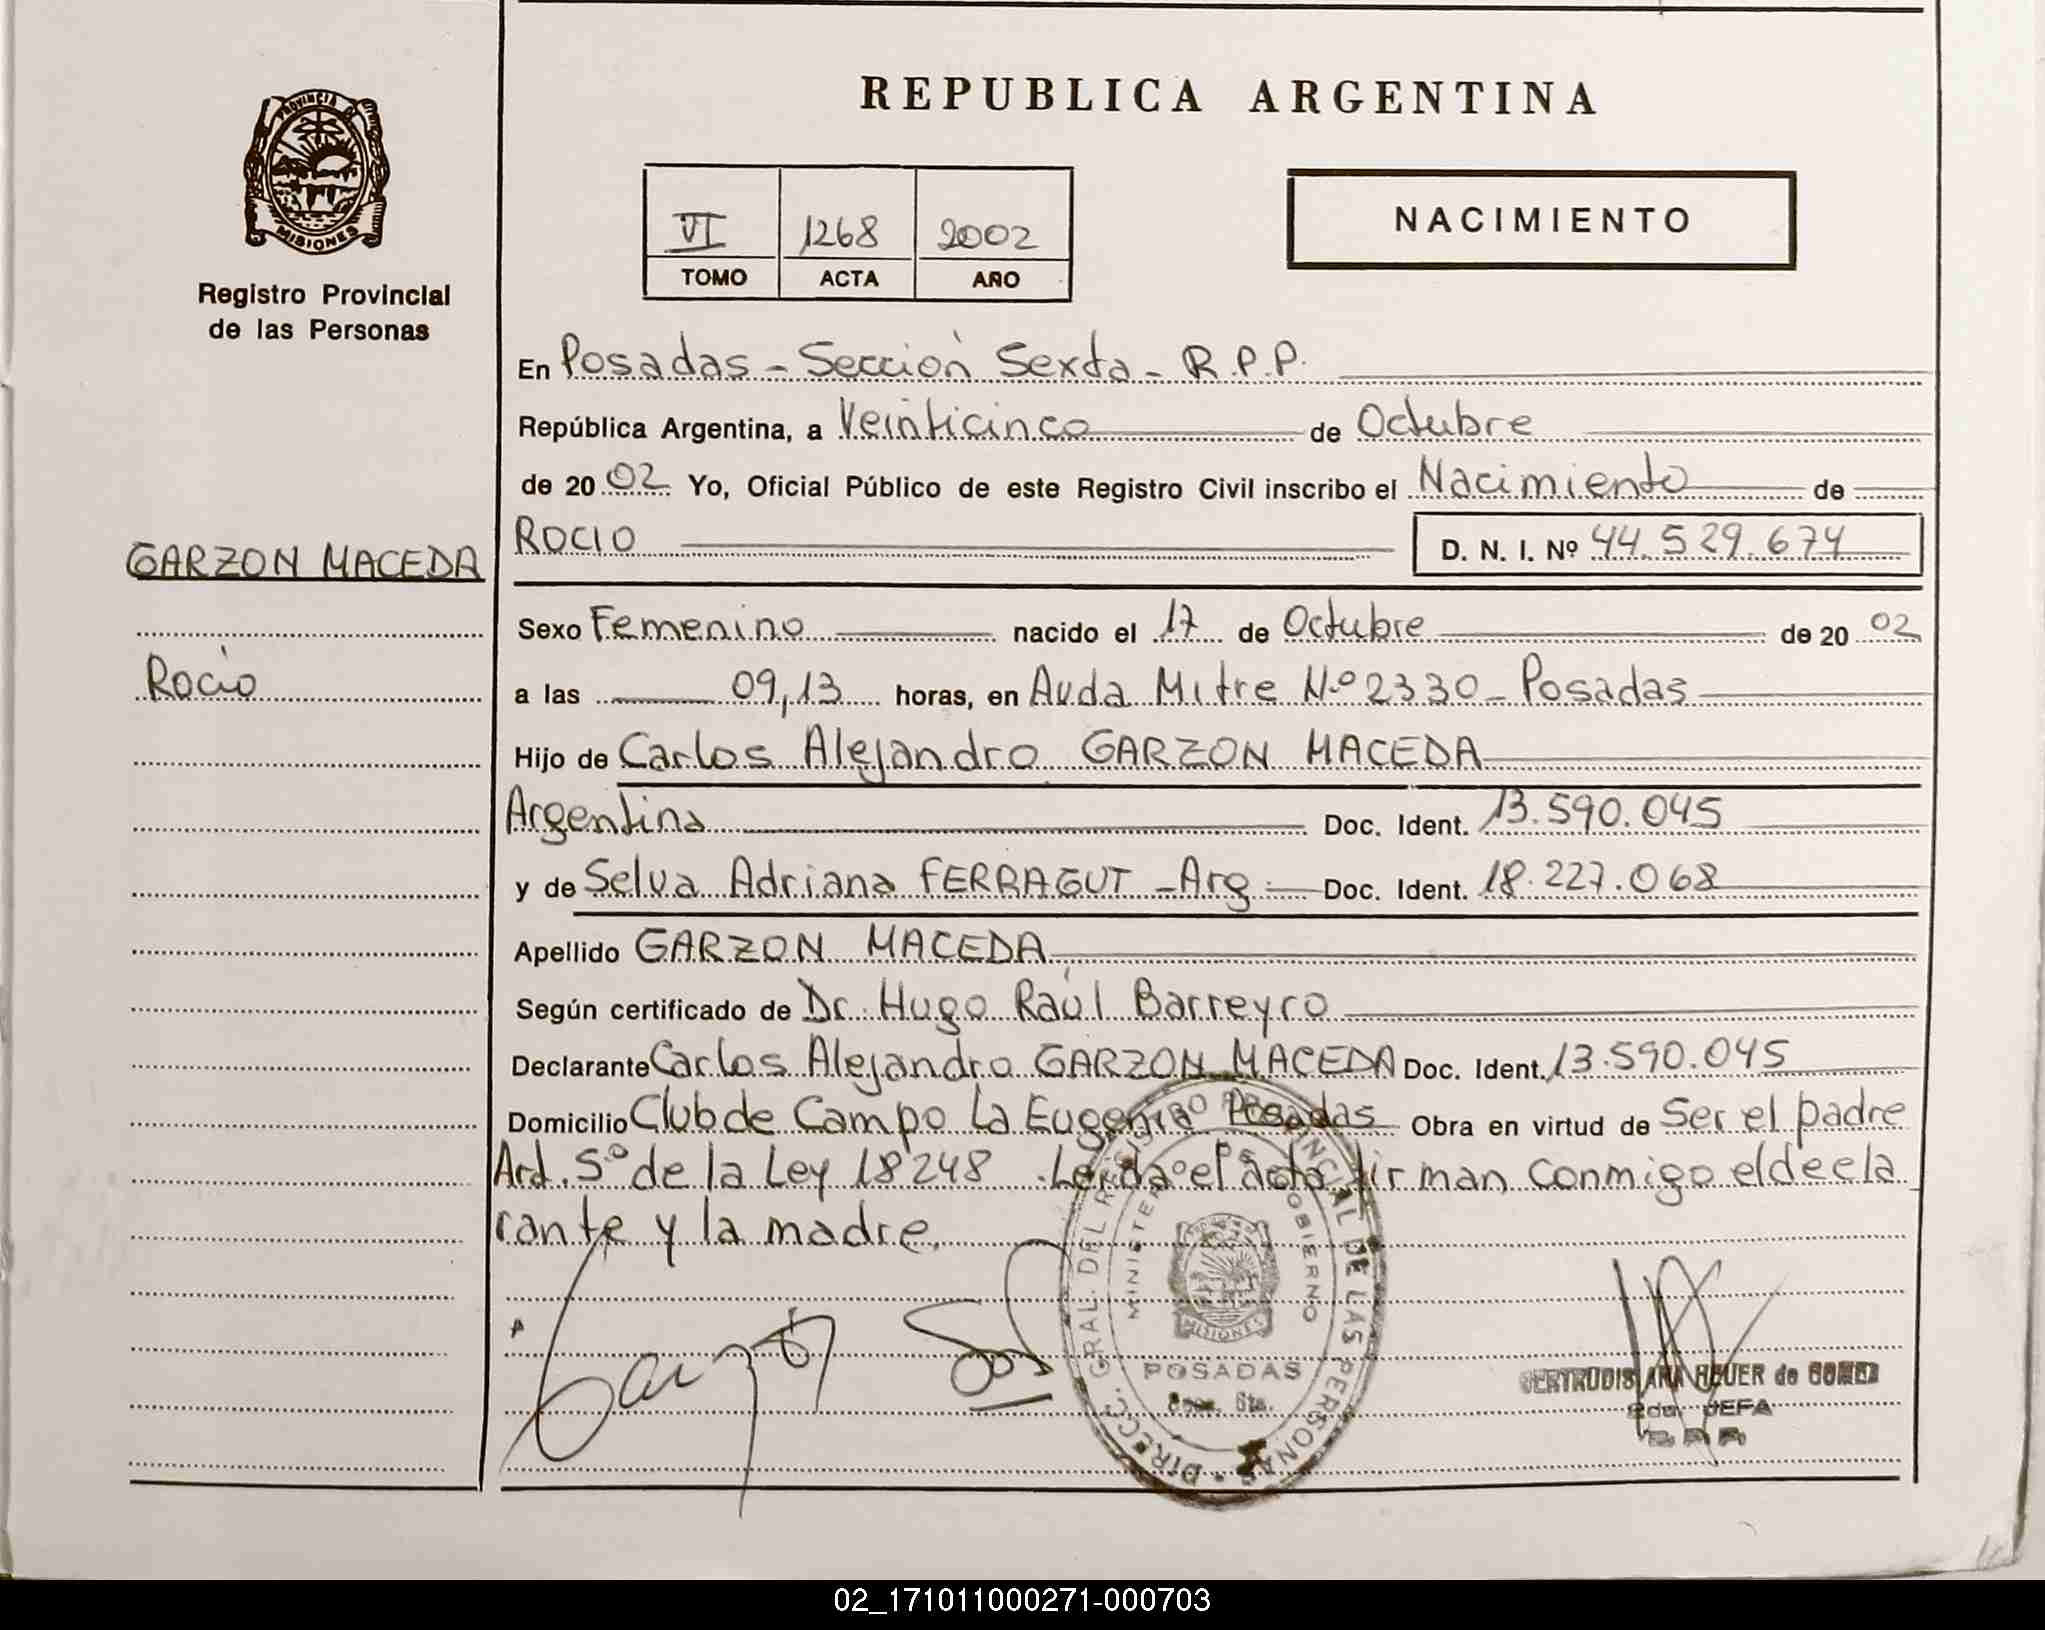 REPUBLICA ARGENTINA
PROVINCIA DE
MISIONES
Registro Provincial
de las Personas
VI 1268 2002
TOMO ACTA AÑO
NACIMIENTO
En Posadas - Sección Sexta - R.P.P.
República Argentina, a Veinticinco de Octubre
de 2002 Yo, Oficial Público de este Registro Civil inscribo el Nacimiento de
ROCIO D. N. I. Nº 44.529.674
GARZON MACEDA
Rocío
Sexo Femenino nacido el 17 de Octubre de 2002
a las 09,13 horas, en Avda Mitre N.º 2330 - Posadas
Hijo de Carlos Alejandro GARZON MACEDA
Argentina Doc. Ident. 13.590.045
y de Selva Adriana FERRAGUT - Arg. Doc. Ident. 18.227.068
Apellido GARZON MACEDA
Según certificado de Dr. Hugo Raúl Barreyro
Declarante Carlos Alejandro GARZON MACEDA Doc. Ident. 13.590.045
Domicilio Club de Campo La Eugenia Posadas Obra en virtud de Ser el padre
Art. 5º de la Ley 18248. Leida el acta firman conmigo el decla
rante y la madre.
DIRECC. GRAL. DEL REGISTRO PROVINCIAL DE LAS PERSONAS
MINISTERIO DE GOBIERNO
MISIONES
POSADAS
Secc. 6ta.
GERTRUDIS ANA HEUER de GOMEZ
2da. JEFA
R.P.P.
02_171011000271-000703